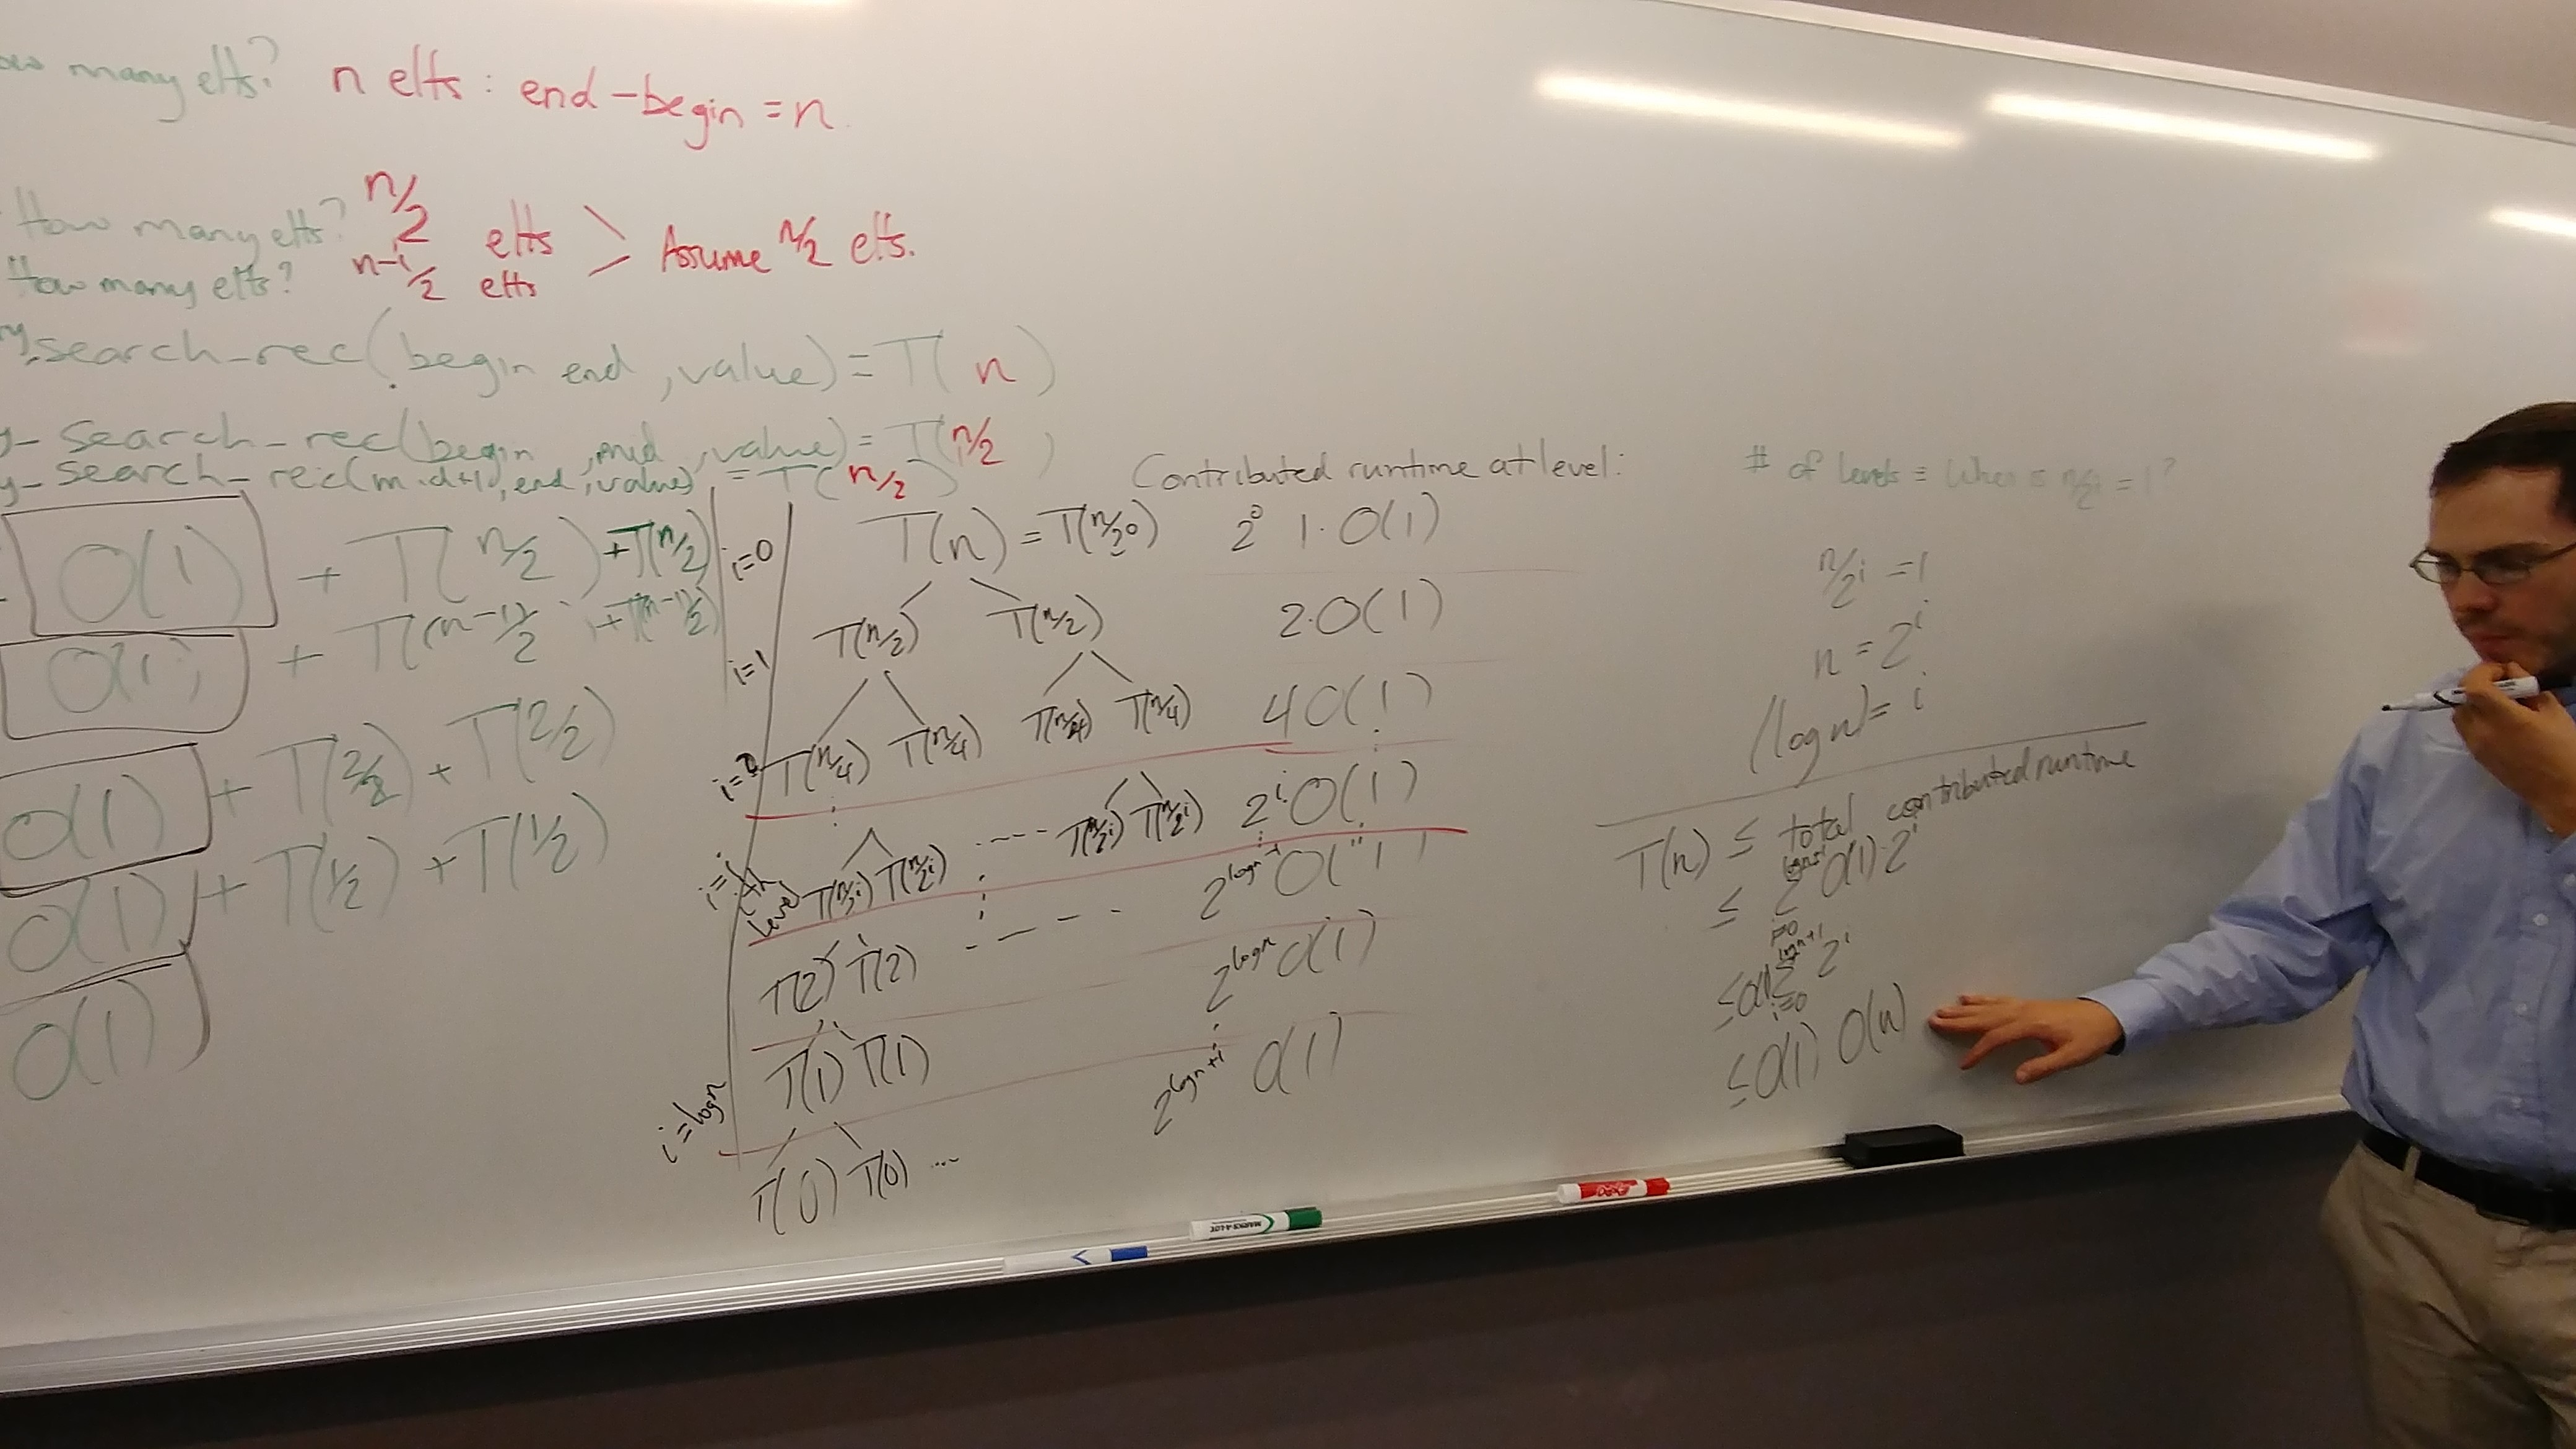 many elts? n elts : end-begin = n
How many elts? n/2 elts > Assume n/2 elts.
How many elts? n-1/2 elts
search_rec(begin end, value) = T(n)
y_search_rec(begin, mid, value) = T(n/2)
y_search_rec(mid+1, end, value) = T(n/2)
O(1) + T(n/2) + T(n/2)
O(1) + T(n-1/2) + T(n-1/2)
O(1) + T(2/2) + T(2/2)
O(1) + T(1/2) + T(1/2)
O(1)
Contributed runtime at level:
i=0 T(n) = T(n/2^0) 2^0 1·O(1)
i=1 T(n/2) T(n/2) 2·O(1)
i=2 T(n/4) T(n/4) T(n/4) T(n/4) 4O(1)
i=ith level T(n/2^i) T(n/2^i) ---- T(n/2^i) T(n/2^i) 2^i O(1)
T(2) T(2) ---- 2^logn-1 O(1)
i=logn T(1) T(1) 2^logn O(1)
T(0) T(0) ... 2^logn+1 O(1)
# of levels = When is n/2^i = 1?
n/2^i = 1
n = 2^i
(log n) = i
T(n) ≤ total contributed runtime
≤ Σ_{i=0}^{logn+1} O(1)·2^i
≤ O(1) Σ_{i=0}^{logn+1} 2^i
≤ O(1) O(n)
MARKS-A-LOT